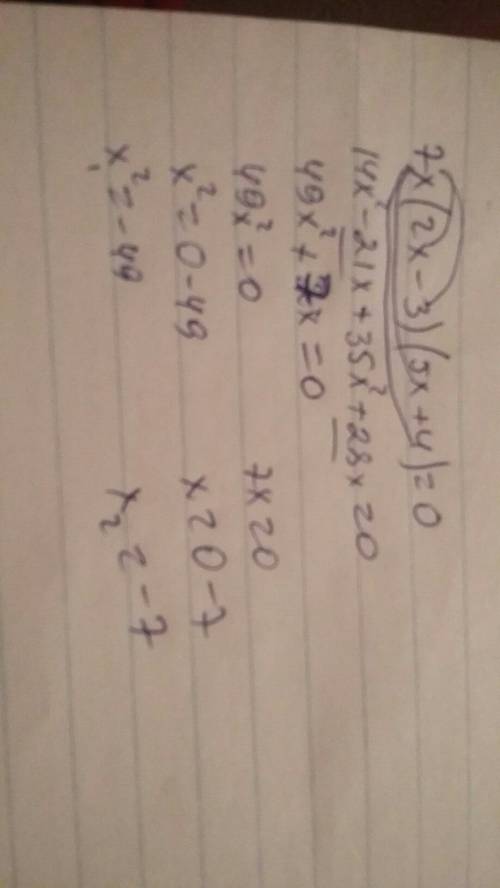 7x(2x-3)(5x+4)=0
14x²-21x+35x²+28x=0
49x²+7x=0
49x²=0 7x=0
x²=0-49 x=0-7
x²=-49 x₂=-7